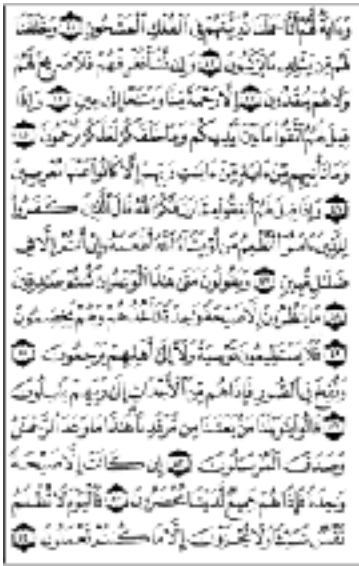 وَءَايَةٌ لَّهُمْ أَنَّا حَمَلْنَا ذُرِّيَّتَهُمْ فِى ٱلْفُلْكِ ٱلْمَشْحُونِ ٤١ وَخَلَقْنَا
لَهُم مِّن مِّثْلِهِۦ مَا يَرْكَبُونَ ٤٢ وَإِن نَّشَأْ نُغْرِقْهُمْ فَلَا صَرِيخَ لَهُمْ
وَلَا هُمْ يُنقَذُونَ ٤٣ إِلَّا رَحْمَةً مِّنَّا وَمَتَٰعًا إِلَىٰ حِينٍ ٤٤ وَإِذَا
قِيلَ لَهُمُ ٱتَّقُوا۟ مَا بَيْنَ أَيْدِيكُمْ وَمَا خَلْفَكُمْ لَعَلَّكُمْ تُرْحَمُونَ ٤٥
وَمَا تَأْتِيهِم مِّنْ ءَايَةٍ مِّنْ ءَايَٰتِ رَبِّهِمْ إِلَّا كَانُوا۟ عَنْهَا مُعْرِضِينَ
٤٦ وَإِذَا قِيلَ لَهُمْ أَنفِقُوا۟ مِمَّا رَزَقَكُمُ ٱللَّهُ قَالَ ٱلَّذِينَ كَفَرُوا۟
لِلَّذِينَ ءَامَنُوٓا۟ أَنُطْعِمُ مَن لَّوْ يَشَآءُ ٱللَّهُ أَطْعَمَهُۥٓ إِنْ أَنتُمْ إِلَّا فِى
ضَلَٰلٍ مُّبِينٍ ٤٧ وَيَقُولُونَ مَتَىٰ هَٰذَا ٱلْوَعْدُ إِن كُنتُمْ صَٰدِقِينَ
٤٨ مَا يَنظُرُونَ إِلَّا صَيْحَةً وَٰحِدَةً تَأْخُذُهُمْ وَهُمْ يَخِصِّمُونَ
٤٩ فَلَا يَسْتَطِيعُونَ تَوْصِيَةً وَلَآ إِلَىٰٓ أَهْلِهِمْ يَرْجِعُونَ ٥٠
وَنُفِخَ فِى ٱلصُّورِ فَإِذَا هُم مِّنَ ٱلْأَجْدَاثِ إِلَىٰ رَبِّهِمْ يَنسِلُونَ
٥١ قَالُوا۟ يَٰوَيْلَنَا مَنۢ بَعَثَنَا مِن مَّرْقَدِنَا هَٰذَا مَا وَعَدَ ٱلرَّحْمَٰنُ
وَصَدَقَ ٱلْمُرْسَلُونَ ٥٢ إِن كَانَتْ إِلَّا صَيْحَةً
وَٰحِدَةً فَإِذَا هُمْ جَمِيعٌ لَّدَيْنَا مُحْضَرُونَ ٥٣ فَٱلْيَوْمَ لَا تُظْلَمُ
نَفْسٌ شَيْـًٔا وَلَا تُجْزَوْنَ إِلَّا مَا كُنتُمْ تَعْمَلُونَ ٥٤